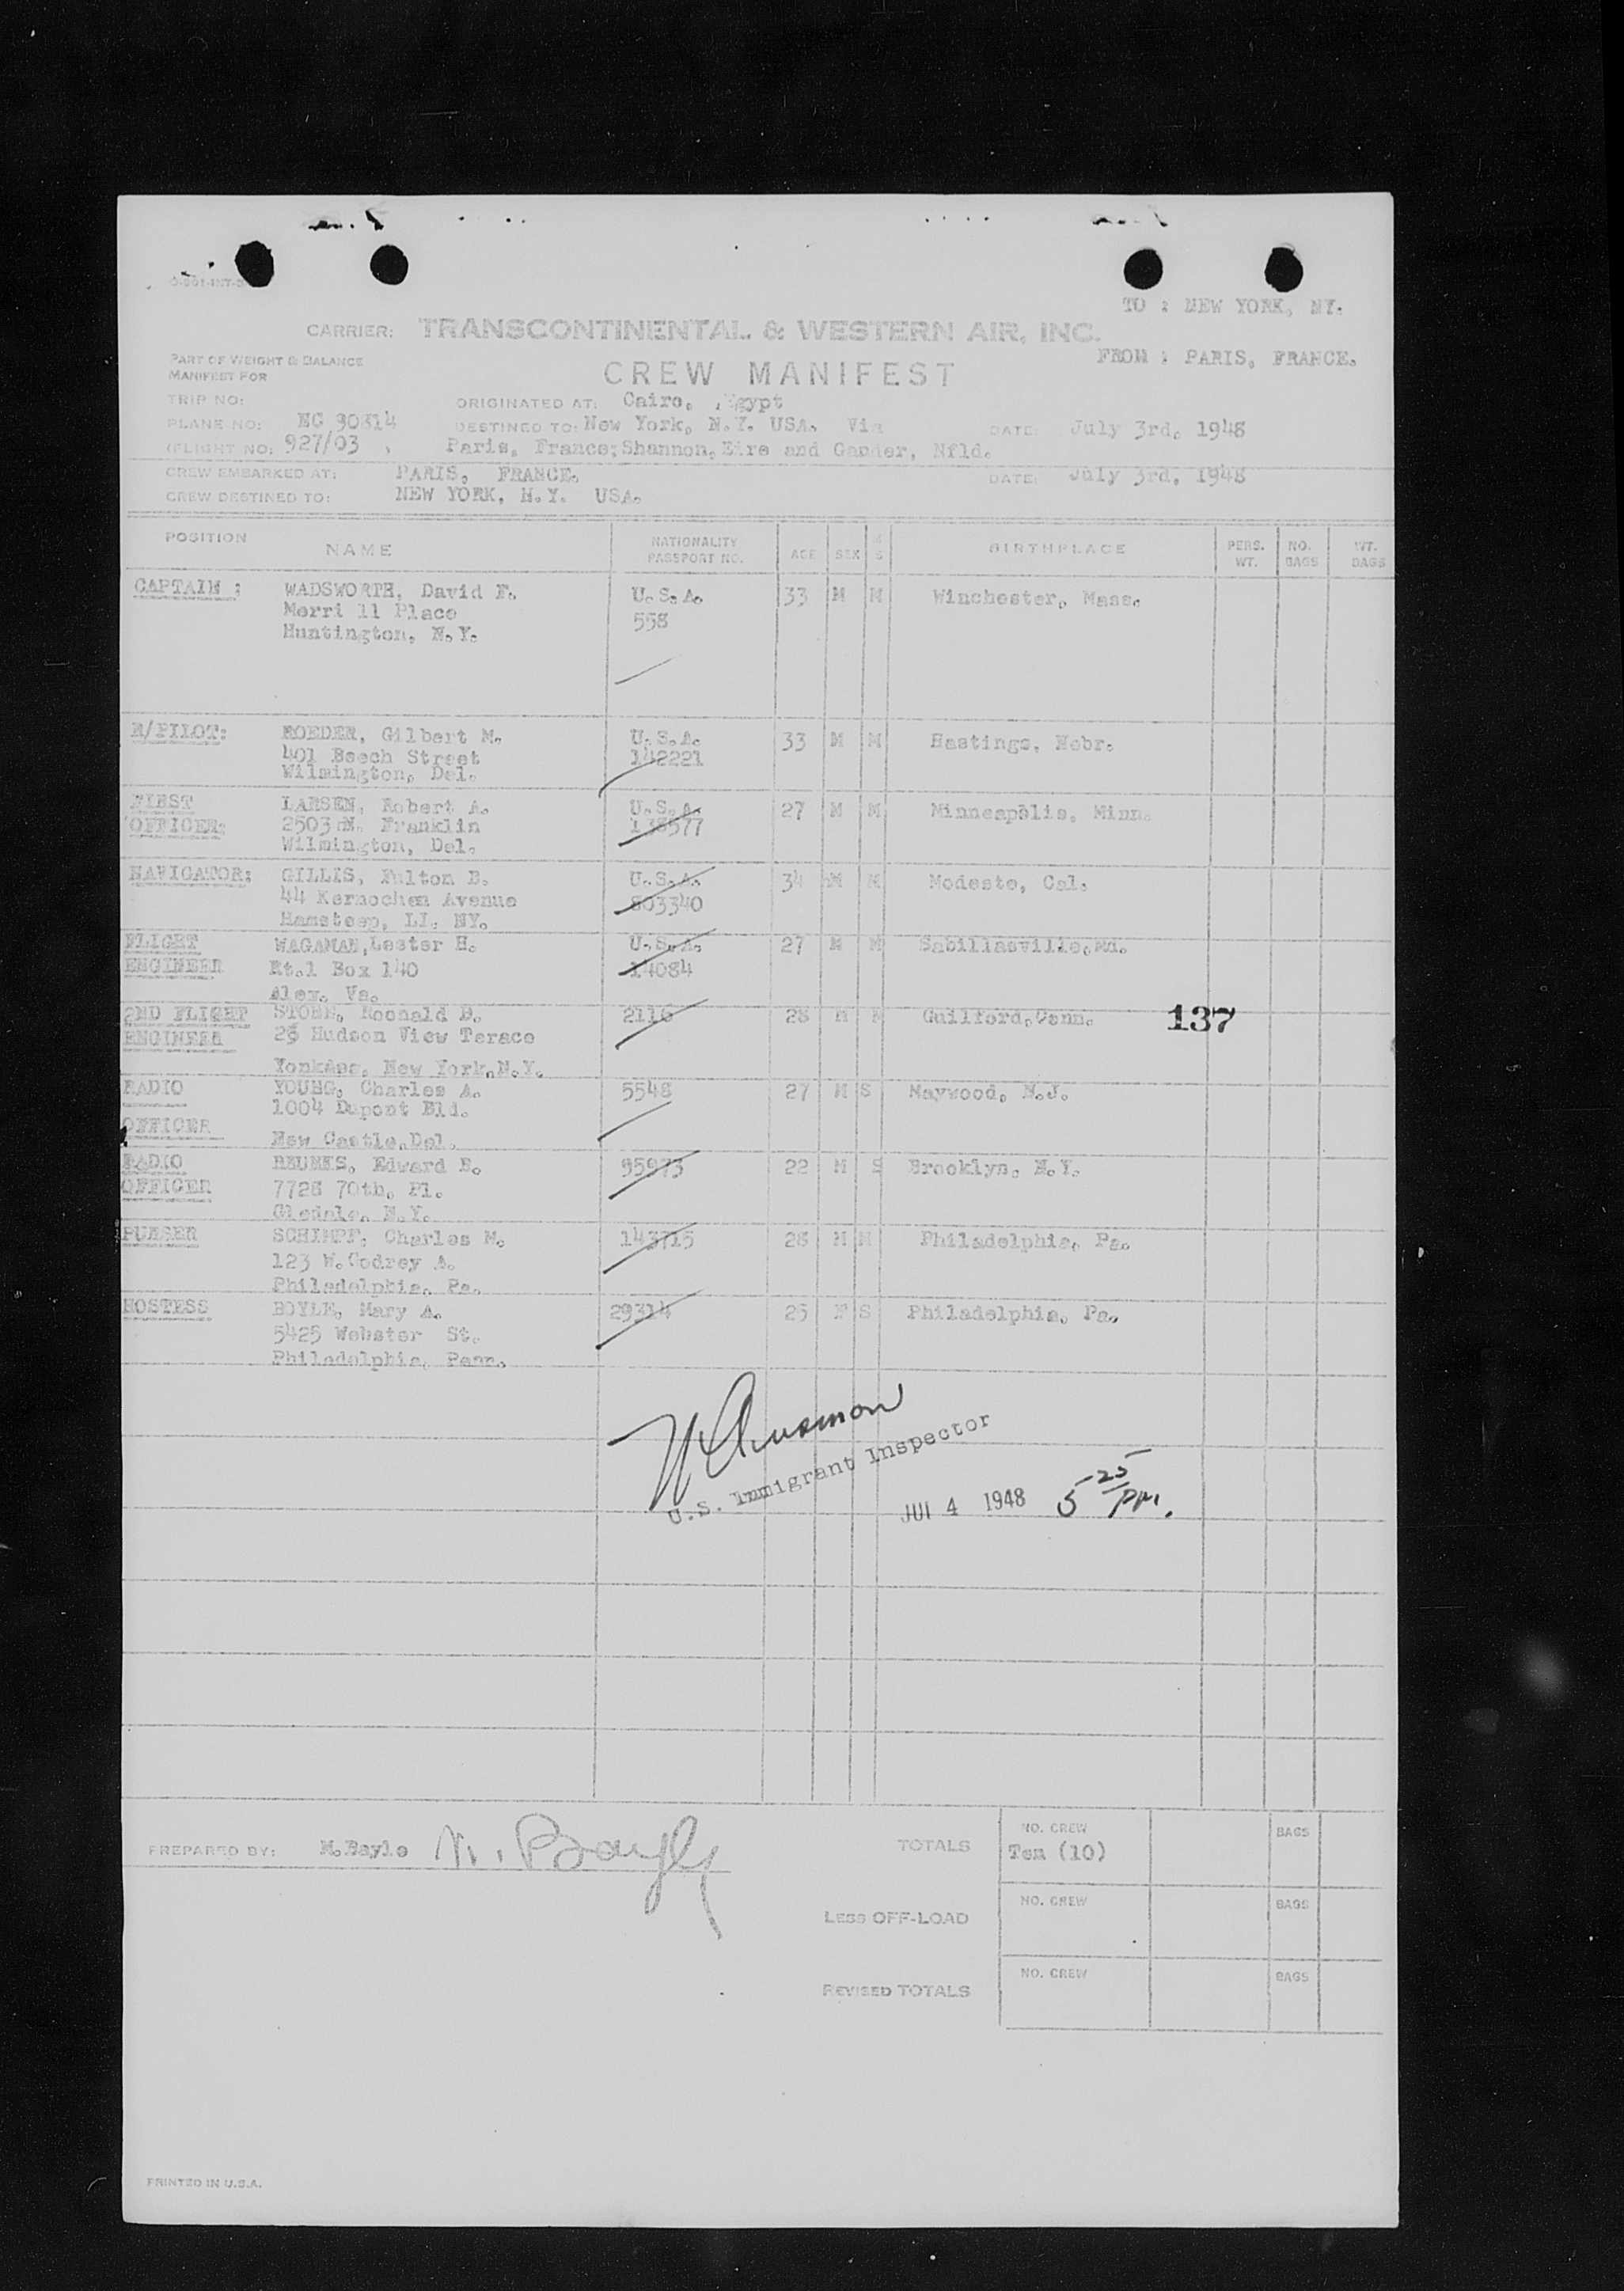 TO : NEW YORK, NY.
CARRIER: TRANSCONTINENTAL & WESTERN AIR, INC.
FROM : PARIS, FRANCE.
PART OF WEIGHT & BALANCE
MANIFEST FOR
CREW MANIFEST
TRIP NO: ORIGINATED AT: Cairo, Egypt
PLANE NO: NC 90814 DESTINED TO: New York, N.Y. USA. Via DATE: July 3rd, 1948
(FLIGHT NO: 927/03 , Paris, France; Shannon, Eire and Gander, Nfld.
CREW EMBARKED AT: PARIS, FRANCE. DATE: July 3rd, 1948
CREW DESTINED TO: NEW YORK, N.Y. USA.
POSITION NAME NATIONALITY PASSPORT NO. AGE SEX M S BIRTHPLACE PERS. WT. NO. BAGS WT. BAGS
CAPTAIN : WADSWORTH, David F. U.S.A. 33 M M Winchester, Mass.
Merri ll Place 558
Huntington, N.Y.
R/PILOT: ROEDER, Gilbert M. U.S.A. 33 M M Hastings, Nebr.
401 Beech Street 142221
Wilmington, Del.
FIRST LARSEN, Robert A. U.S.A. 27 M M Minneapolis, Minn.
OFFICER: 2503 N. Franklin 138577
Wilmington, Del.
NAVIGATOR: GILLIS, Fulton B. U.S.A. 34 M M Modesto, Cal.
44 Kernochen Avenue 803340
Hamsteep, LI. NY.
FLIGHT WAGAMAN, Lester H. U.S.A. 27 M M Sabillasville, Md.
ENGINEER Rt.1 Box 140 14084
Alex. Va.
2ND FLIGHT STONE, Roonald D. 2116 28 M M Guilford, Conn. 137
ENGINEER Hudson View Terace
New York, N.Y.
RADIO YOUNG, Charles A. 5548 27 M S Maywood, N.J.
1004 Dupont Bld.
OFFICER New Castle, Del.
RADIO Edward E. 95973 22 M S Brooklyn, N.Y.
OFFICER 7728 70th, Pl.
Gledale, N.Y.
PURSER SCHIMPF, Charles M. 143715 28 M M Philadelphia, Pa.
123 W. Godrey A.
Philadelphia, Pa.
HOSTESS BOYLE, Mary A. 29314 25 F S Philadelphia, Pa.
5425 Webster St.
Philadelphia, Penn.
U.S. Immigrant Inspector
JUL 4 1948 5 25 PM.
PREPARED BY: M.Bayle M. Bayle TOTALS NO. CREW Ten (10) BAGS
LESS OFF-LOAD NO. CREW BAGS
REVISED TOTALS NO. CREW BAGS
PRINTED IN U.S.A.